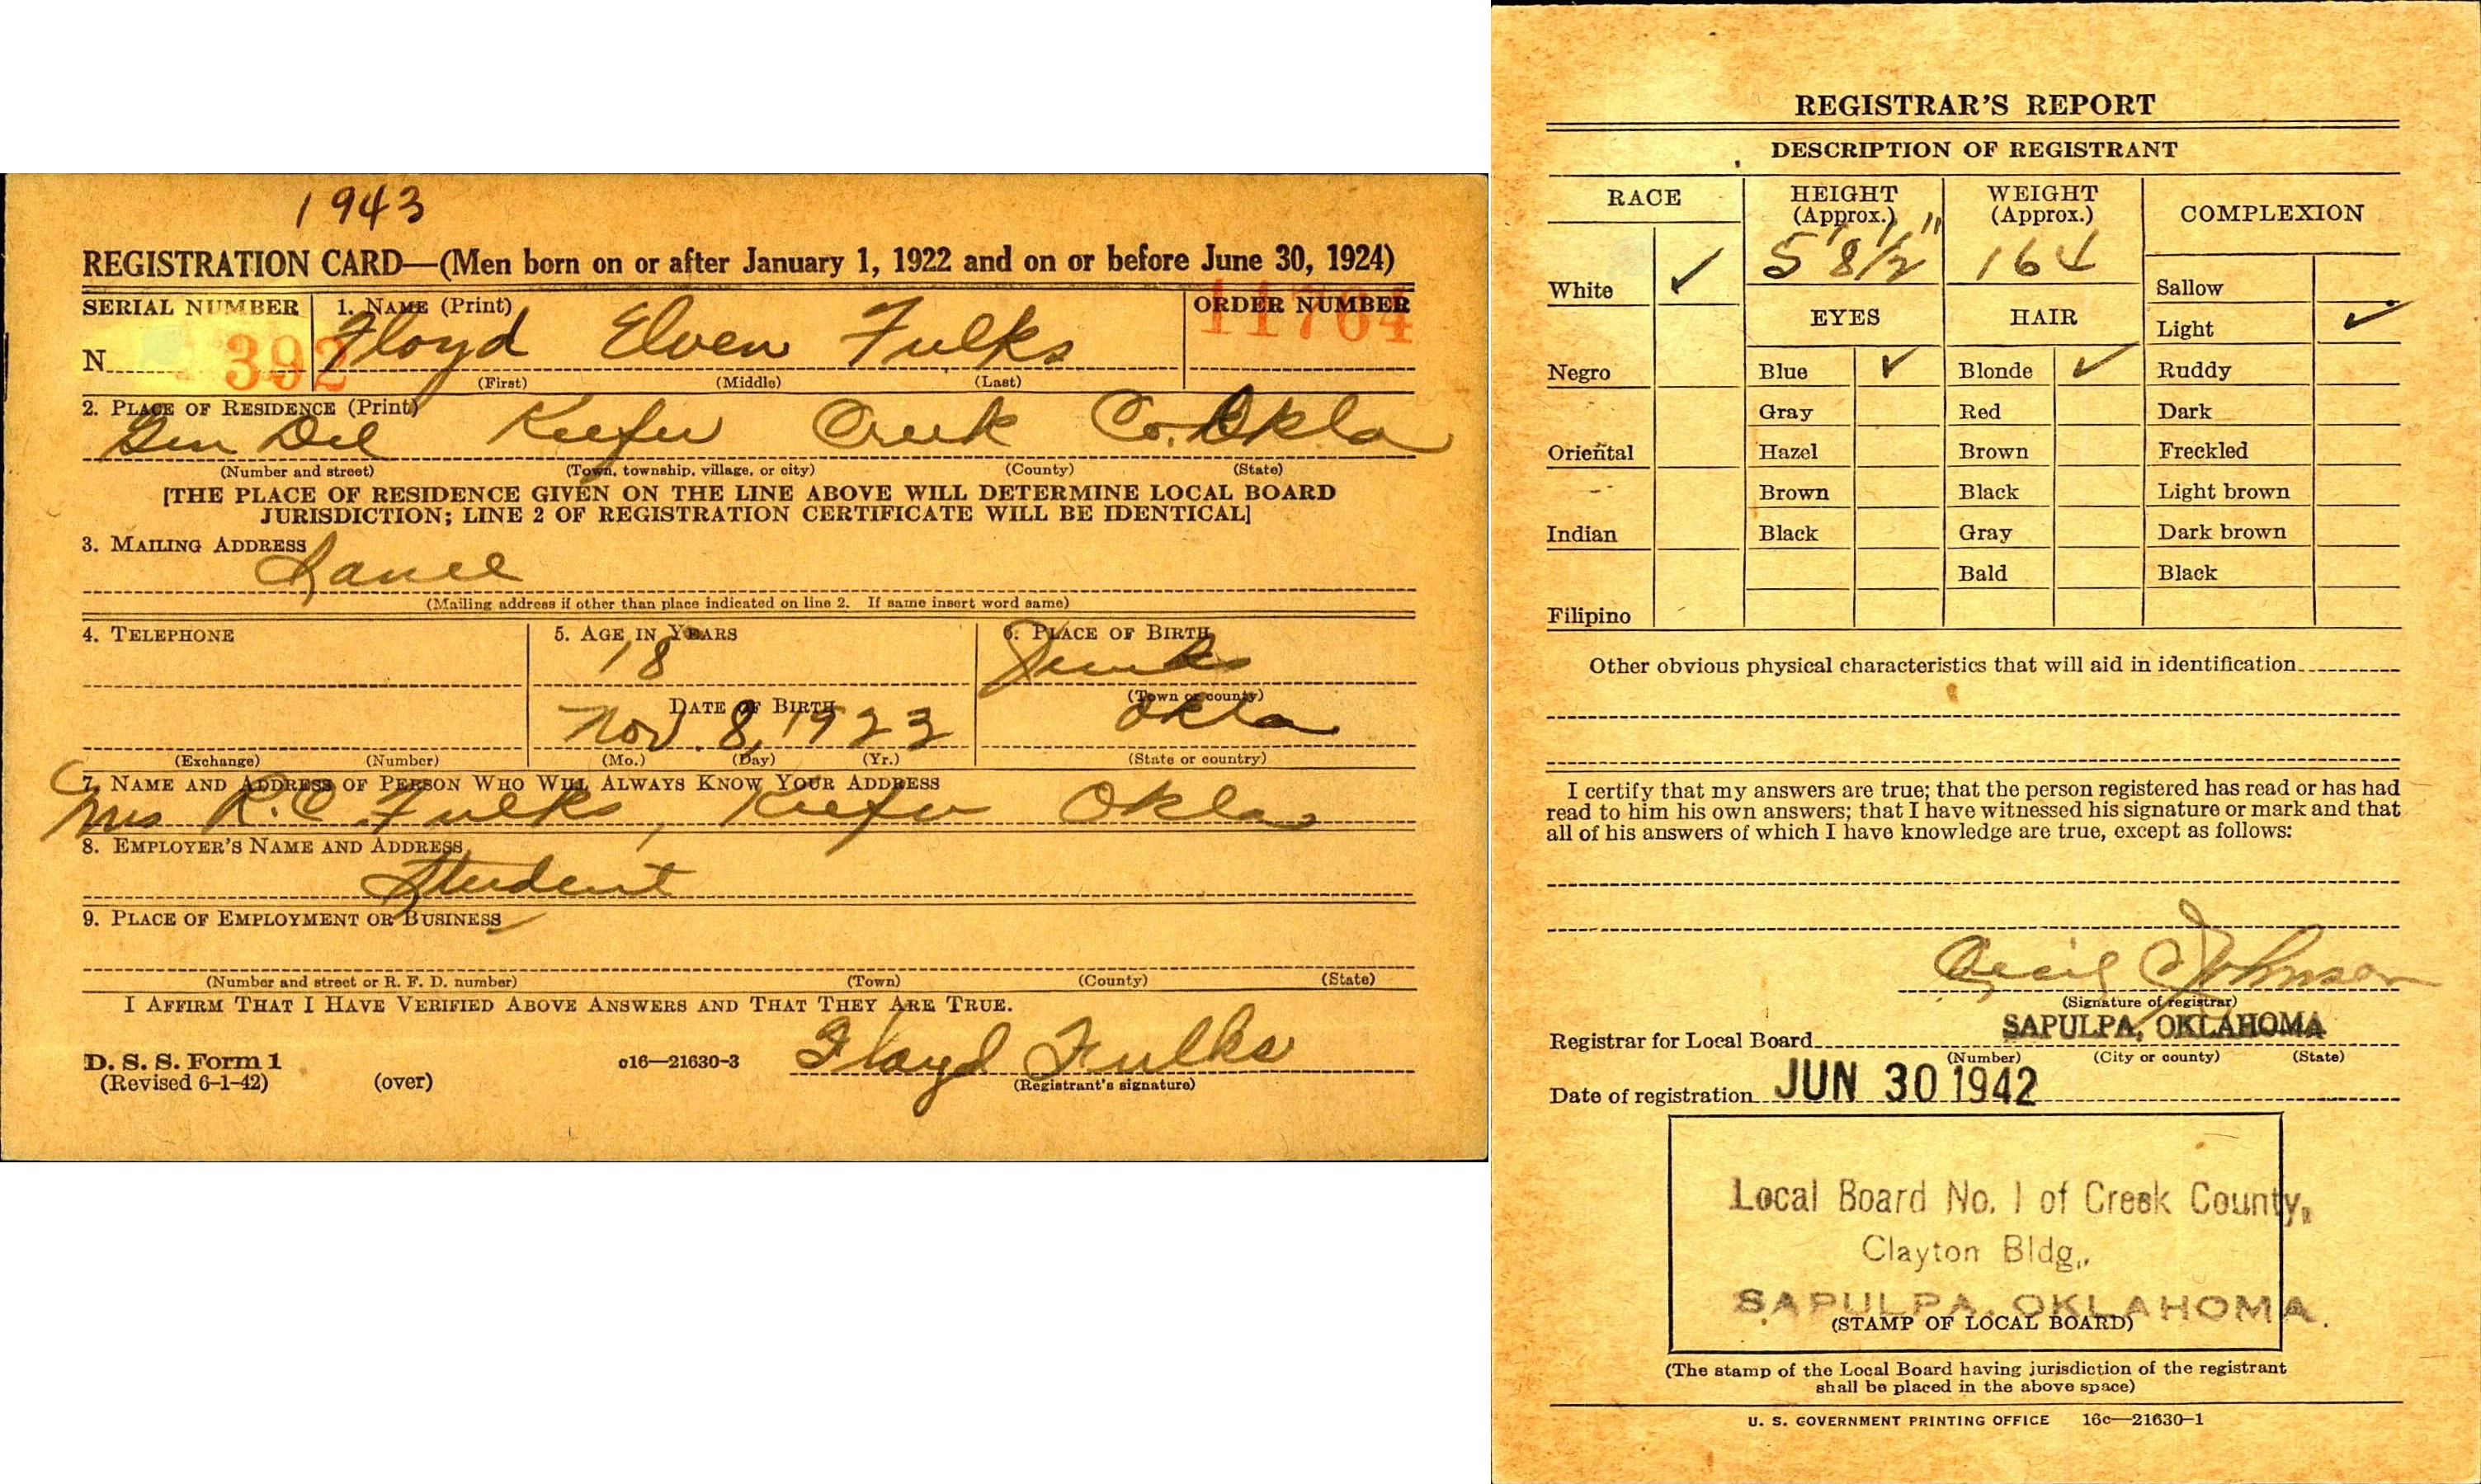 1943
REGISTRATION CARD—(Men born on or after January 1, 1922 and on or before June 30, 1924)
SERIAL NUMBER 1. NAME (Print) ORDER NUMBER
N 392 Floyd Elven Fulks 11764
(First) (Middle) (Last)
2. PLACE OF RESIDENCE (Print)
Gen Del Kiefer Creek Co. Okla
(Number and street) (Town, township, village, or city) (County) (State)
[THE PLACE OF RESIDENCE GIVEN ON THE LINE ABOVE WILL DETERMINE LOCAL BOARD
JURISDICTION; LINE 2 OF REGISTRATION CERTIFICATE WILL BE IDENTICAL]
3. MAILING ADDRESS
Same
(Mailing address if other than place indicated on line 2. If same insert word same)
4. TELEPHONE 5. AGE IN YEARS 6. PLACE OF BIRTH
18 Jenks
(Town or county)
DATE OF BIRTH
Nov. 8, 1923 Okla
(Exchange) (Number) (Mo.) (Day) (Yr.) (State or country)
7. NAME AND ADDRESS OF PERSON WHO WILL ALWAYS KNOW YOUR ADDRESS
Mrs R.C. Fulks, Kiefer Okla
8. EMPLOYER'S NAME AND ADDRESS
Student
9. PLACE OF EMPLOYMENT OR BUSINESS
(Number and street or R. F. D. number) (Town) (County) (State)
I AFFIRM THAT I HAVE VERIFIED ABOVE ANSWERS AND THAT THEY ARE TRUE.
Floyd Fulks
D. S. S. Form 1 c16—21630-3
(Revised 6-1-42) (over) (Registrant's signature)
REGISTRAR'S REPORT
DESCRIPTION OF REGISTRANT
RACE HEIGHT (Approx.) WEIGHT (Approx.) COMPLEXION
5' 8 1/2" 164
White ✓ Sallow
EYES HAIR Light ✓
Negro Blue ✓ Blonde ✓ Ruddy
Gray Red Dark
Oriental Hazel Brown Freckled
Brown Black Light brown
Indian Black Gray Dark brown
Bald Black
Filipino
Other obvious physical characteristics that will aid in identification
I certify that my answers are true; that the person registered has read or has had
read to him his own answers; that I have witnessed his signature or mark and that
all of his answers of which I have knowledge are true, except as follows:
Cecil C Johnson
(Signature of registrar)
Registrar for Local Board SAPULPA, OKLAHOMA
(Number) (City or county) (State)
Date of registration JUN 30 1942
Local Board No. 1 of Creek County,
Clayton Bldg.,
SAPULPA, OKLAHOMA.
(STAMP OF LOCAL BOARD)
(The stamp of the Local Board having jurisdiction of the registrant
shall be placed in the above space)
U. S. GOVERNMENT PRINTING OFFICE 16c—21630-1